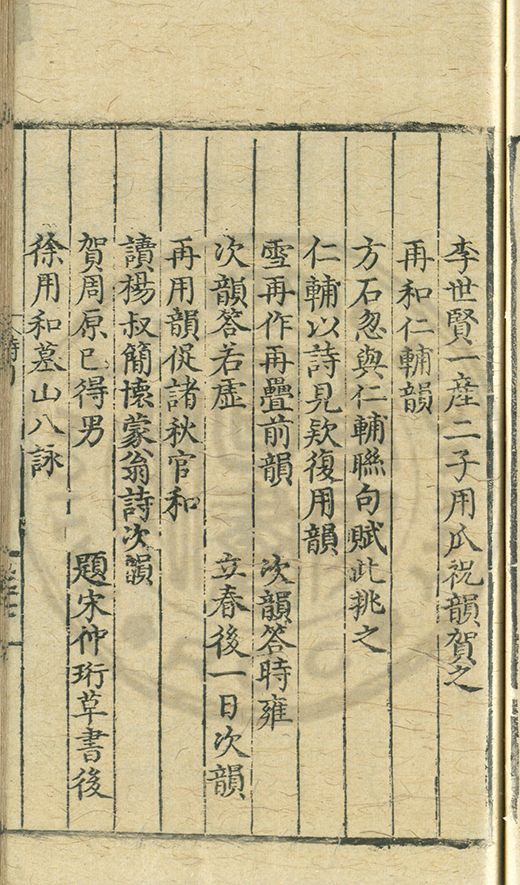 李世賢一產二子用瓜祝韻賀之
再和仁輔韻
方石忽與仁輔聯句賦此挑之
仁輔以詩見欵復用韻
雪再作再疊前韻　次韻答時雍
次韻答若虛　立春後一日次韻
再用韻促諸秋官和
讀楊叔簡懷蒙翁詩次韻
賀周原已得男　題宋仲珩草書後
徐用和墓山八詠